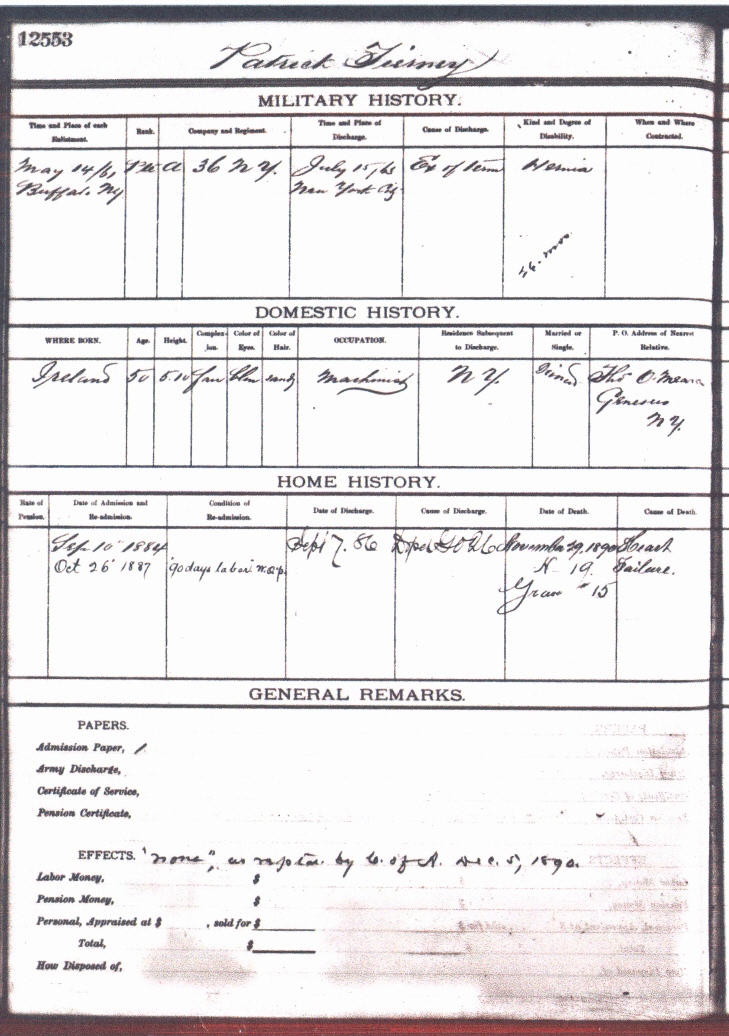 12553
Patrick Tierney
MILITARY HISTORY.
Time and Place of each Enlistment. Rank. Company and Regiment. Time and Place of Discharge. Cause of Discharge. Kind and Degree of Disability. When and Where Contracted.
May 14/61 A 36 N Y. July 15/63 Ex of term Hernia
Buffalo NY New York City
DOMESTIC HISTORY.
WHERE BORN. Age. Height. Complexion. Color of Eyes. Color of Hair. OCCUPATION. Residence Subsequent to Discharge. Married or Single. P. O. Address of Nearest Relative.
Ireland 50 5.10 fair blue sandy Machinist N Y. Thos O. Meara
Geneseo
N Y.
HOME HISTORY.
Rate of Pension. Date of Admission and Re-admission. Condition of Re-admission. Date of Discharge. Cause of Discharge. Date of Death. Cause of Death.
Sep 10 1884 Sept 7. 86 Dpd G.O 26 November 29, 1890 Heart
Oct 26 1887 90 days labor N - 19. Failure.
Grave # 15
GENERAL REMARKS.
PAPERS.
Admission Paper, /
Army Discharge,
Certificate of Service,
Pension Certificate,
EFFECTS. "none", as by C. of A. Dec. 5, 1890.
Labor Money, $
Pension Money, $
Personal, Appraised at $ , sold for $
Total, $
How Disposed of,